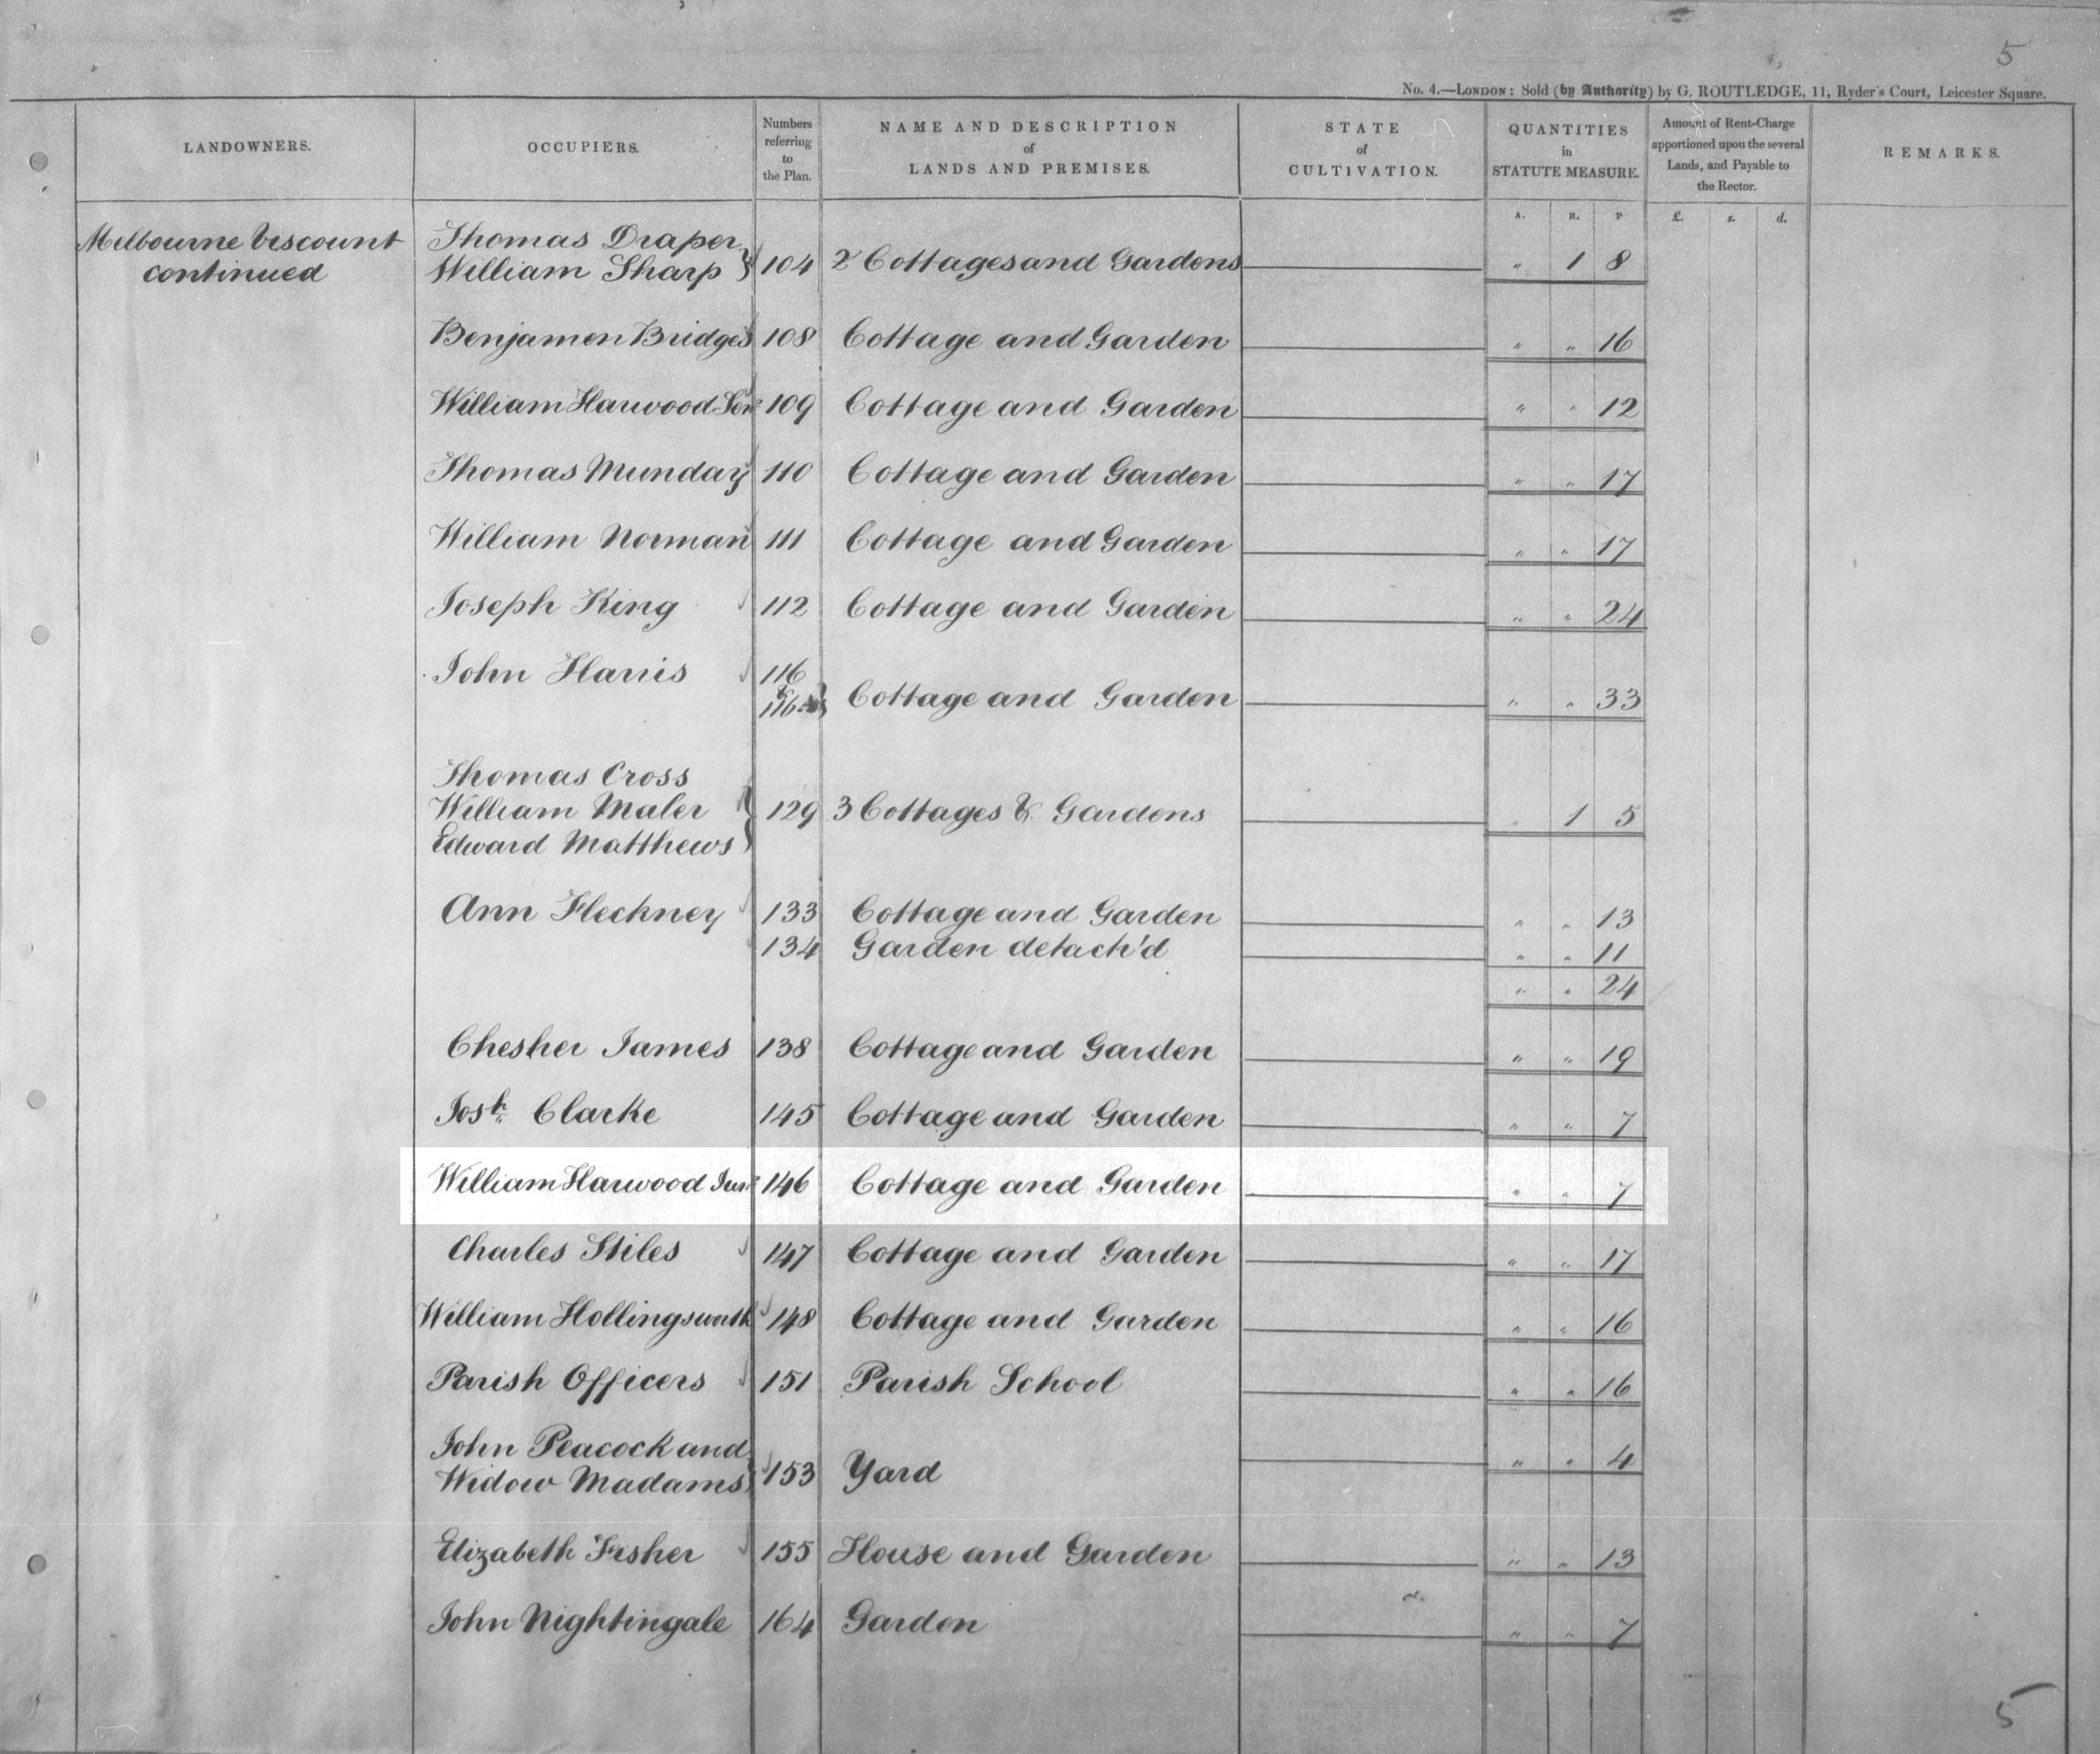 5
No. 4.—LONDON: Sold (by Authority) by G. ROUTLEDGE, 11, Ryder's Court, Leicester Square.
LANDOWNERS. OCCUPIERS. Numbers referring to the Plan. NAME AND DESCRIPTION of LANDS AND PREMISES. STATE of CULTIVATION. QUANTITIES in STATUTE MEASURE. Amount of Rent-Charge apportioned upon the several Lands, and Payable to the Rector. REMARKS.
A. R. P £. s. d.
Melbourne Viscount Thomas Draper
continued William Sharp } 104 2 Cottages and Gardens " 1 8
Benjamen Bridges 108 Cottage and Garden " " 16
William Harwood Senr 109 Cottage and Garden " " 12
Thomas Munday 110 Cottage and Garden " " 17
William Norman 111 Cottage and Garden " " 17
Joseph King 112 Cottage and Garden " " 24
John Harris 116
& 116 } Cottage and Garden " " 33
Thomas Cross
William Maler } 129 3 Cottages & Gardens " 1 5
Edward Matthews
Ann Fleckney 133 Cottage and Garden " " 13
134 Garden detach'd " " 11
" " 24
Chesher James 138 Cottage and Garden " " 19
Josh Clarke 145 Cottage and Garden " " 7
William Harwood Junr 146 Cottage and Garden " " 7
Charles Stiles 147 Cottage and Garden " " 17
William Hollingsworth 148 Cottage and Garden " " 16
Parish Officers 151 Parish School " " 16
John Peacock and
Widow Madams } 153 Yard " " 4
Elizabeth Fisher 155 House and Garden " " 13
John Nightingale 164 Garden " " 7
5